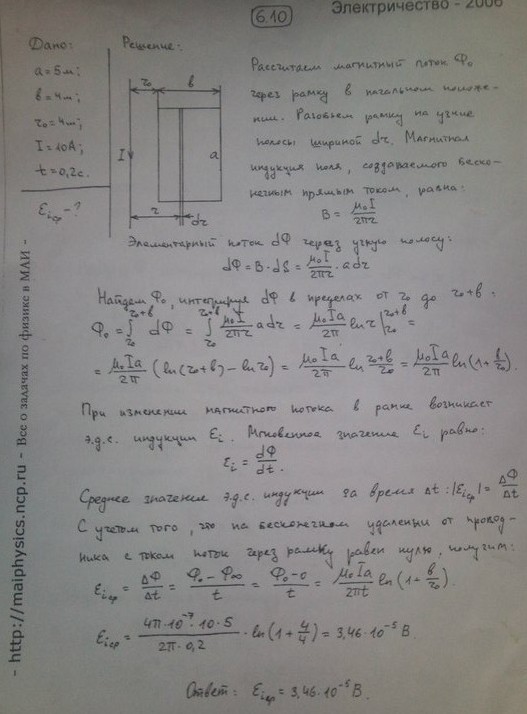 6.10
Электричество - 2006
Дано:
a = 5м;
b = 4м;
r₀ = 4м;
I = 10А;
t = 0,2с.
Ɛi ср - ?
Решение:
r₀
b
I
a
r
dr
Рассчитаем магнитный поток Φ₀
через рамку в начальном положе-
нии. Разобьем рамку на узкие
полосы шириной dr. Магнитная
индукция поля, создаваемого беско-
нечным прямым током, равна:
B = μ₀I / 2πr
Элементарный поток dΦ через узкую полосу:
dΦ = B · dS = μ₀I / 2πr · a dr
Найдем Φ₀, интегрируя dΦ в пределах от r₀ до r₀+b.
Φ₀ = ∫ r₀ r₀+b dΦ = ∫ r₀ r₀+b μ₀I / 2πr a dr = μ₀Ia / 2π ln r | r₀ r₀+b =
= μ₀Ia / 2π (ln(r₀+b) - ln r₀) = μ₀Ia / 2π ln r₀+b / r₀ = μ₀Ia / 2π ln(1+ b/r₀).
При изменении магнитного потока в рамке возникает
э.д.с. индукции Ɛi. Мгновенное значение Ɛi равно:
Ɛi = dΦ / dt.
Среднее значение э.д.с. индукции за время Δt: |Ɛi ср| = ΔΦ / Δt
С учетом того, что на бесконечном удалении от провод-
ника с током поток через рамку равен нулю, получим:
Ɛi ср = ΔΦ / Δt = Φ₀ - Φ∞ / t = Φ₀ - 0 / t = μ₀Ia / 2πt ln(1+ b/r₀).
Ɛi ср = 4π·10⁻⁷·10·5 / 2π·0,2 · ln(1+ 4/4) = 3,46·10⁻⁵ В.
Ответ: Ɛi ср = 3,46·10⁻⁵ В.
- http://maiphysics.ncp.ru - Все о задачах по физике в МАИ -